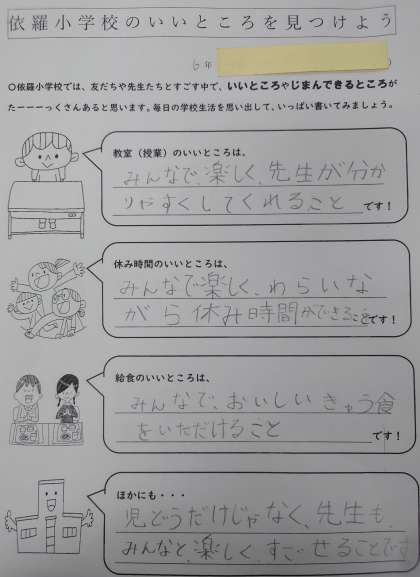 依羅小学校のいいところを見つけよう
6年
○依羅小学校では、友だちや先生たちとすごす中で、いいところやじまんできるところが
たーーーっくさんあると思います。毎日の学校生活を思い出して、いっぱい書いてみましょう。
教室（授業）のいいところは、
みんなで、楽しく、先生が分か
りやすくしてくれること です！
休み時間のいいところは、
みんなで楽しく、わらいな
がら休み時間ができること です！
給食のいいところは、
みんなで、おいしいきゅう食
をいただけること です！
ほかにも・・・
児どうだけじゃなく、先生も、
みんなと、楽しく、すごせることです